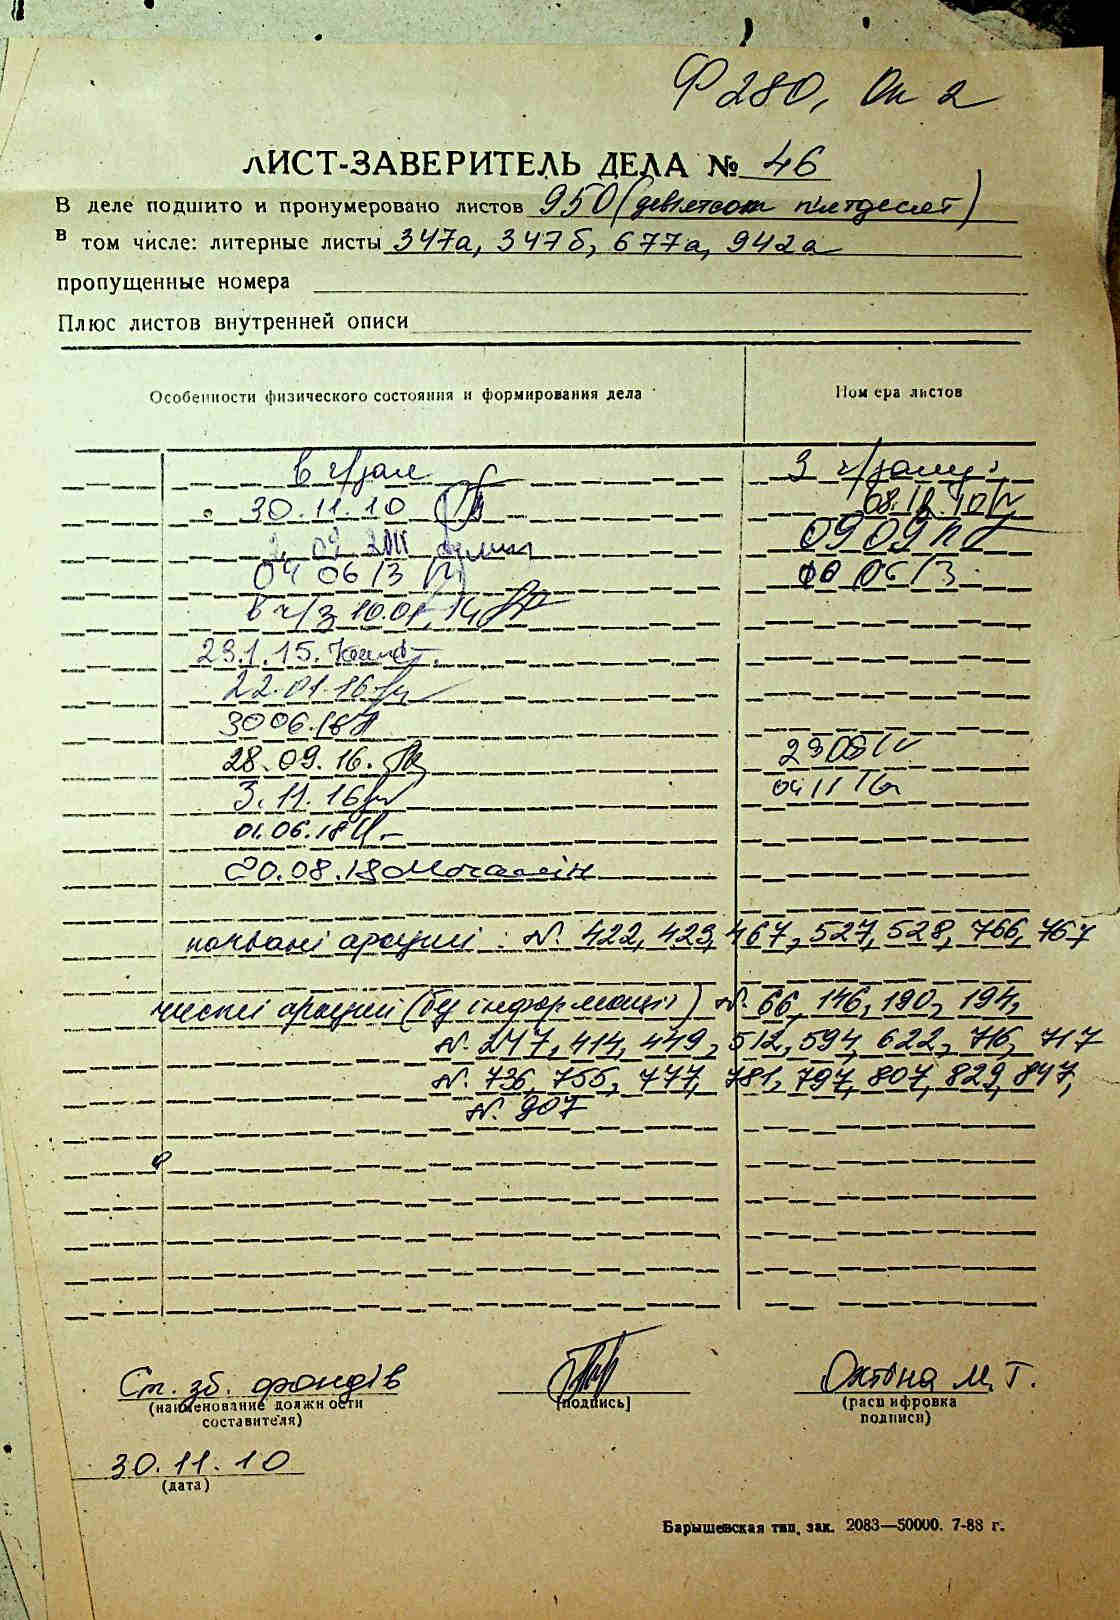 Ф 280, Оп 2
ЛИСТ-ЗАВЕРИТЕЛЬ ДЕЛА № 46
В деле подшито и пронумеровано листов 950 (девʼятсот пʼятдесят)
в том числе: литерные листы 347а, 347б, 677а, 942а
пропущенные номера
Плюс листов внутренней описи
Особенности физического состояния и формирования дела Номера листов
в ч/зал З ч/залу:
30.11.10 08.12.10
09 09
04 06 13 10 06 13
в ч/з 10.01.14
23.1.15.
22.01.16
30 06.16
28.09.16. 23 08
3.11.16 04 11 16
01.06.18
20.08.18
порвані аркуші: N. 422, 423, 467, 527, 528, 766, 767
чисті аркуші (без інформації) N. 66, 146, 190, 194,
N. 247, 414, 449, 512, 594, 622, 716, 717
N. 736, 755, 777, 781, 797, 807, 829, 847,
N. 907
Ст. зб. фондів Октіна М. Т.
(наименование должности (подпись) (расшифровка
составителя) подписи)
30.11.10
(дата)
Барышевская тип. зак. 2083—50000. 7-88 г.